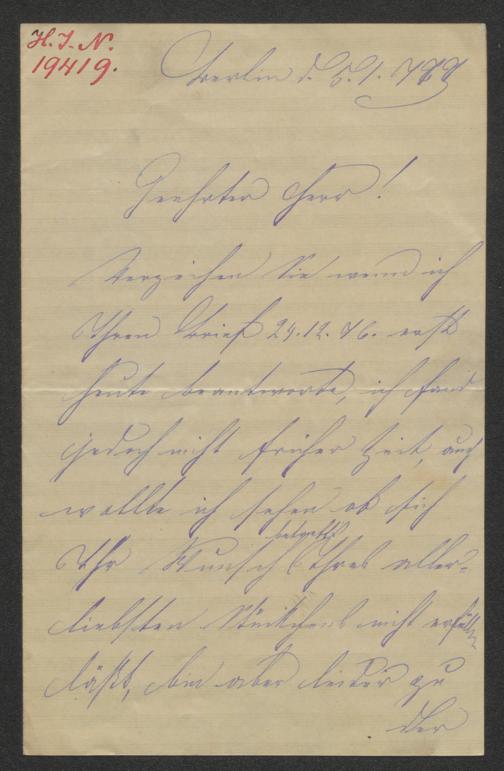 H. I. N.
19419.
Berlin d. 5.1.
Geehrter Herr!
Verzeihen Sie wenn ich
Ihren Brief 24.12.76. erst
heute beantworte, ich fand
jedoch nicht früher Zeit, auch
wollte ich sehen ob sich
Ihr Wunsch betreffs Ihres aller-
liebsten Stückchens nicht erfüllen
läßt, bin aber leider zu
der